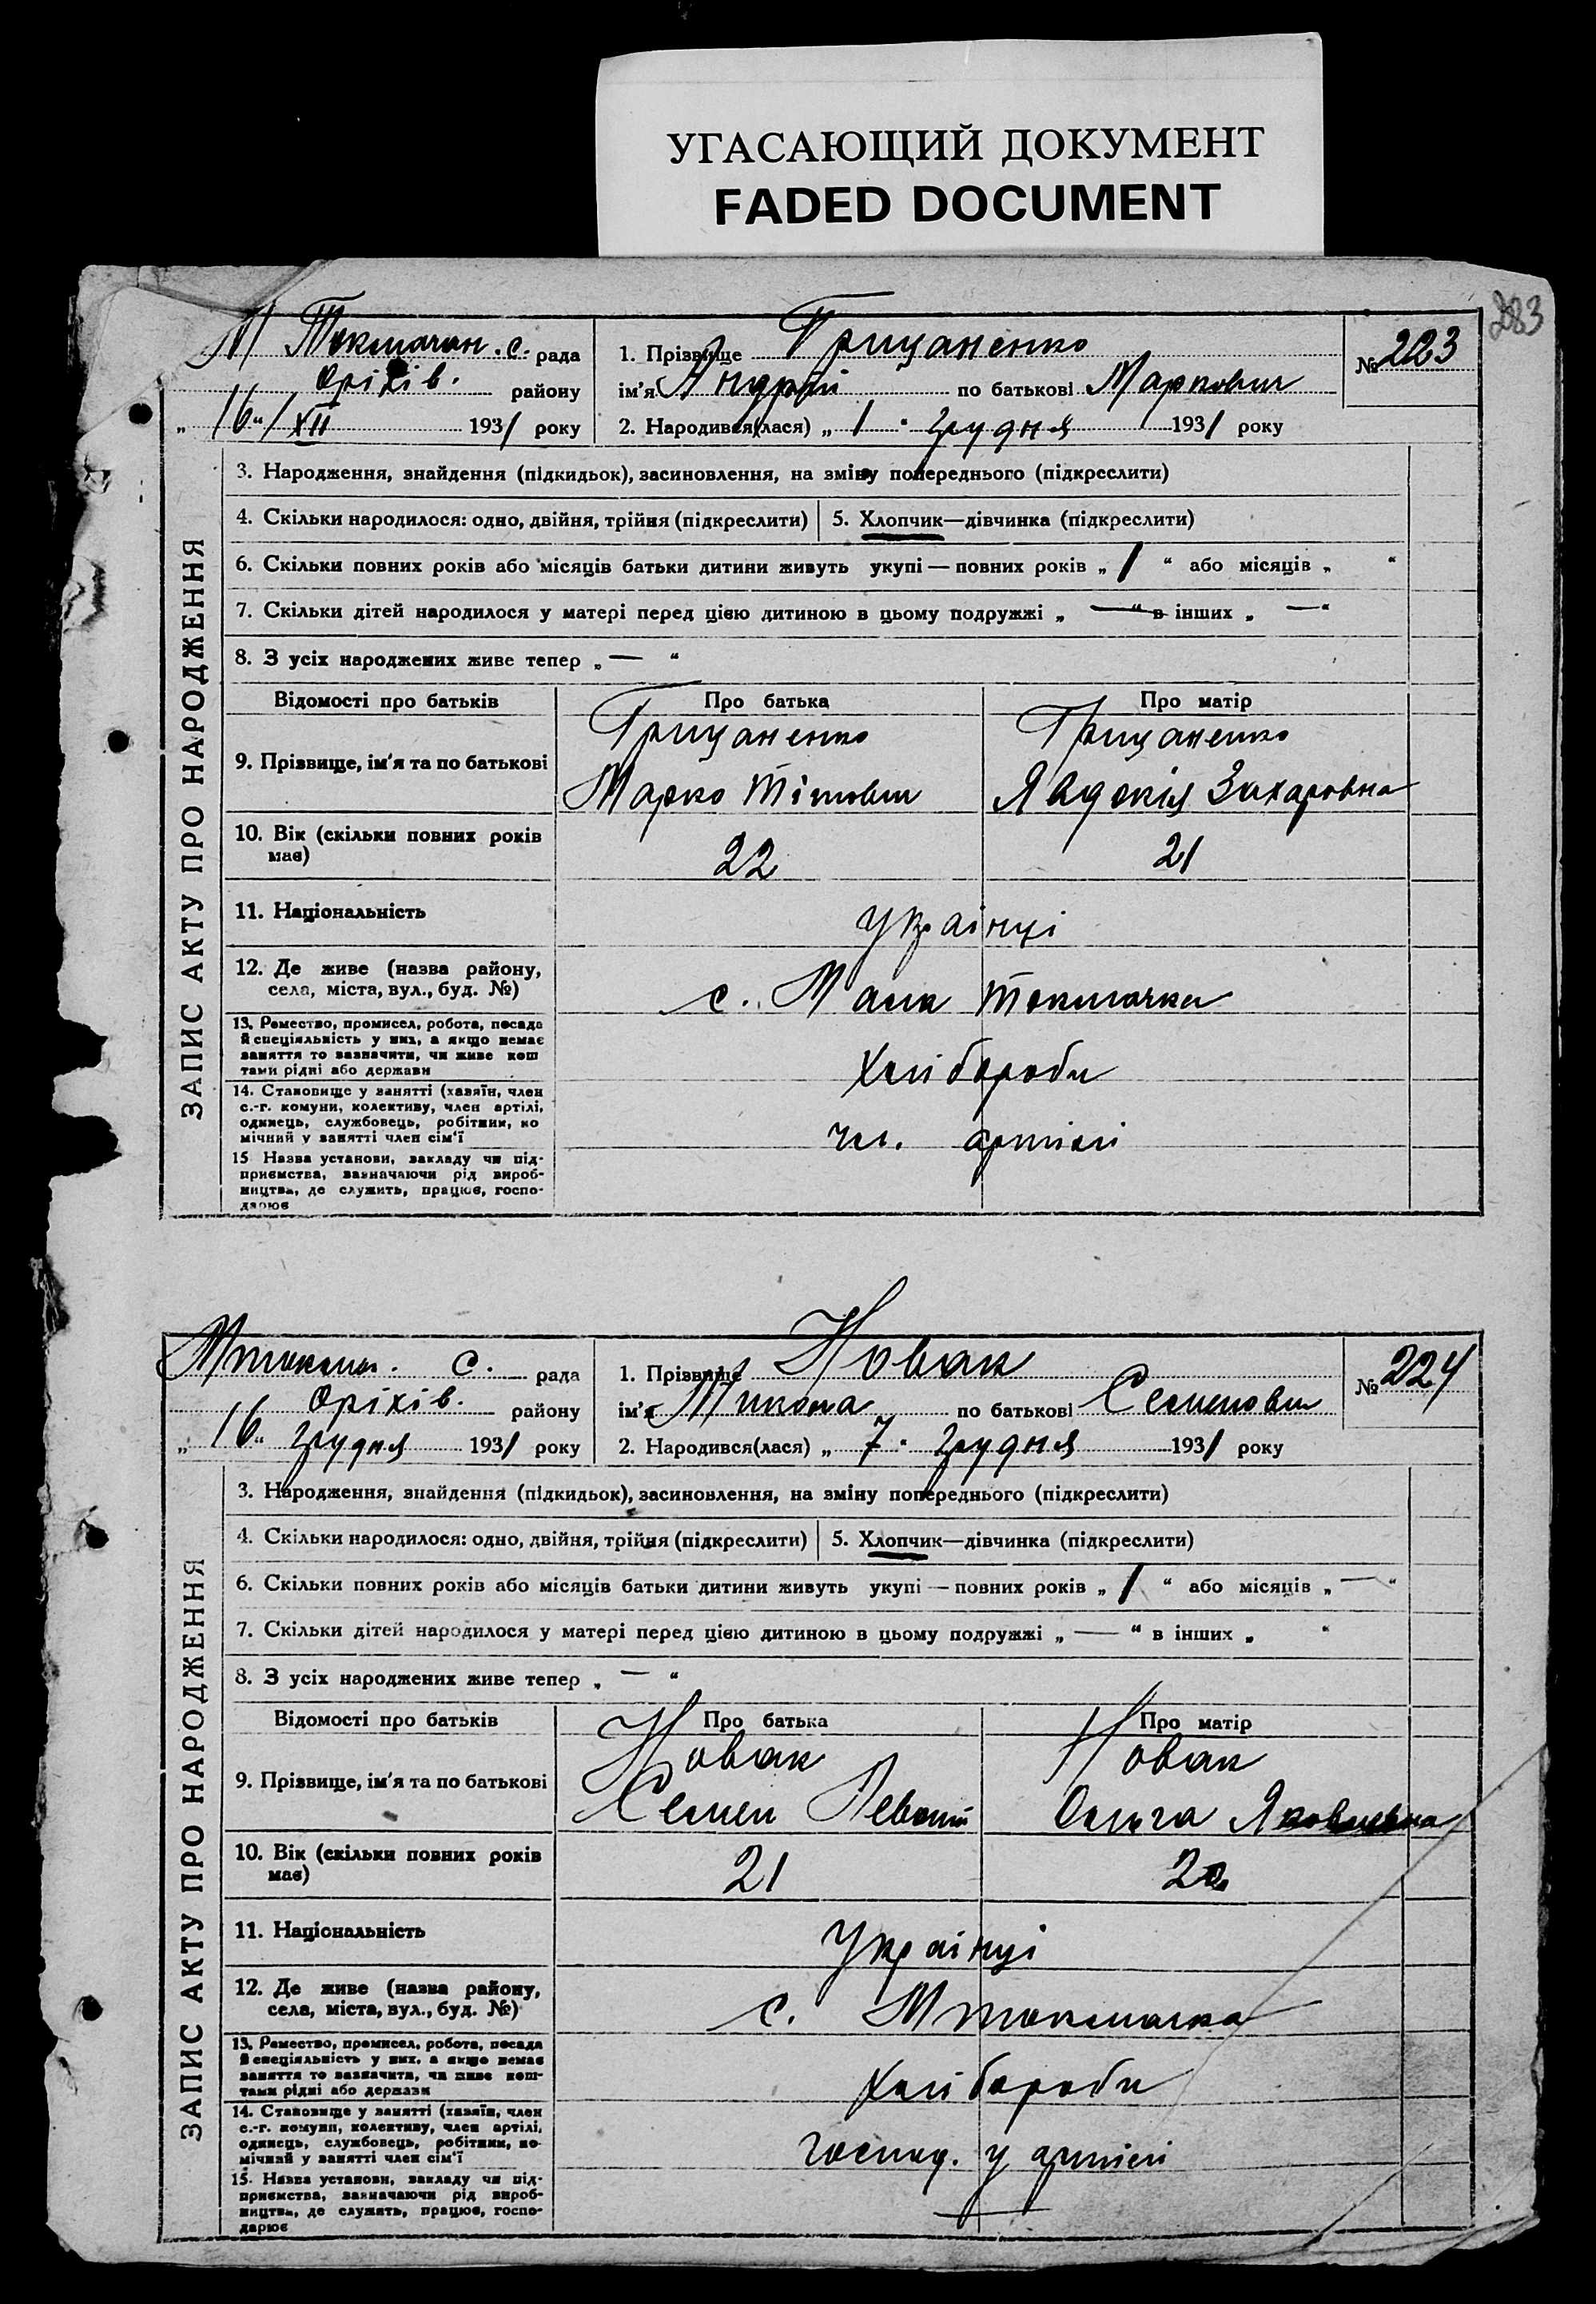 УГАСАЮЩИЙ ДОКУМЕНТ
FADED DOCUMENT
283
М Токмачан. с. рада
Оріхів. району
„ 16 “ / XII 1931 року
1. Прізвище Грицаненко
ім'я Андрій по батькові Маркович
2. Народився(лася) „ 1 “ грудня 1931 року
№ 223
ЗАПИС АКТУ ПРО НАРОДЖЕННЯ
3. Народження, знайдення (підкидьок), засиновлення, на зміну попереднього (підкреслити)
4. Скільки народилося: одно, двійня, трійня (підкреслити) 5. Хлопчик—дівчинка (підкреслити)
6. Скільки повних років або місяців батьки дитини живуть укупі — повних років „ 1 “ або місяців „ “
7. Скільки дітей народилося у матері перед цією дитиною в цьому подружжі „ — “ в інших „ — “
8. З усіх народжених живе тепер „ — “
Відомості про батьків Про батька Про матір
9. Прізвище, ім'я та по батькові
Грицаненко Грицаненко
Марко Тітович Явдокія Захаровна
10. Вік (скільки повних років має) 22 21
11. Національність українці
12. Де живе (назва району, села, міста, вул., буд. №) с. Мала Токмачка
13. Ремество, промисел, робота, посада й спеціяльність у них, а якщо немає заняття то зазначити, чи живе коштами рідні або держави
Хлібороби
14. Становище у занятті (хазяїн, член с.-г. комуни, колективу, член артілі, одинець, службовець, робітник, помічний у занятті член сім'ї
чл. артілі
15 Назва установи, закладу чи підприємства, зазначаючи рід виробництва, де служить, працює, господарює
Мтокмач. с. рада
Оріхів. району
„ 16 “ грудня 1931 року
1. Прізвище Новак
ім'я Микола по батькові Семенович
2. Народився(лася) „ 7 “ грудня 1931 року
№ 224
ЗАПИС АКТУ ПРО НАРОДЖЕННЯ
3. Народження, знайдення (підкидьок), засиновлення, на зміну попереднього (підкреслити)
4. Скільки народилося: одно, двійня, трійня (підкреслити) 5. Хлопчик—дівчинка (підкреслити)
6. Скільки повних років або місяців батьки дитини живуть укупі — повних років „ 1 “ або місяців „ — “
7. Скільки дітей народилося у матері перед цією дитиною в цьому подружжі „ — “ в інших „ “
8. З усіх народжених живе тепер „ — “
Відомості про батьків Про батька Про матір
9. Прізвище, ім'я та по батькові
Новак Новак
Семен Ольга Яковлевна
10. Вік (скільки повних років має) 21
11. Національність Українці
12. Де живе (назва району, села, міста, вул., буд. №) с. Мтокмачка
13. Ремество, промисел, робота, посада й спеціяльність у них, а якщо немає заняття то зазначити, чи живе коштами рідні або держави
Хлібороби
14. Становище у занятті (хазяїн, член с.-г. комуни, колективу, член артілі, одинець, службовець, робітник, помічний у занятті член сім'ї
господ. у артілі
15. Назва установи, закладу чи підприємства, зазначаючи рід виробництва, де служить, працює, господарює